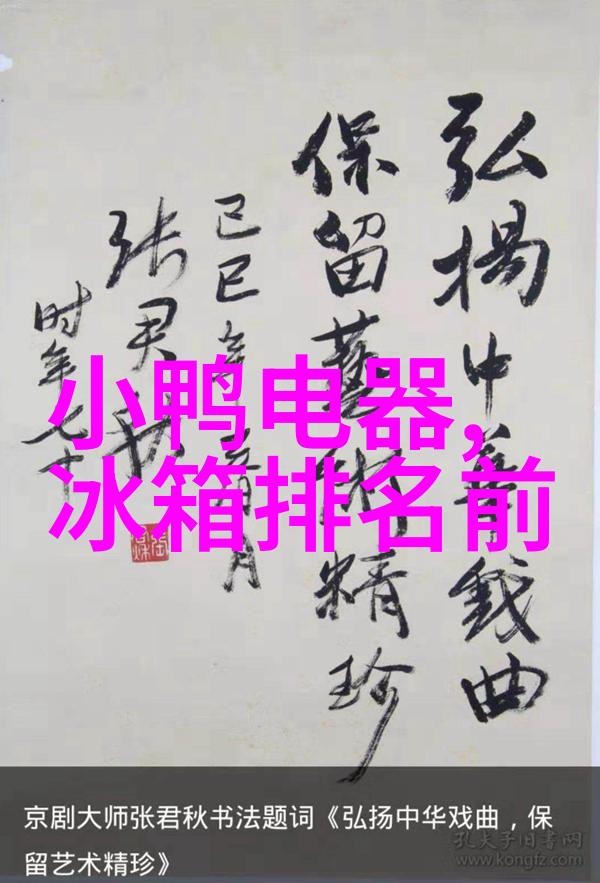 弘揚中華戲曲
保留藝術精珍
己巳年
张君秋
时年七十
小鸭电器,
冰箱排名前
京剧大师张君秋书法题词《弘扬中华戏曲，保
留艺术精珍》
孔夫子旧书网
www.kongfz.com